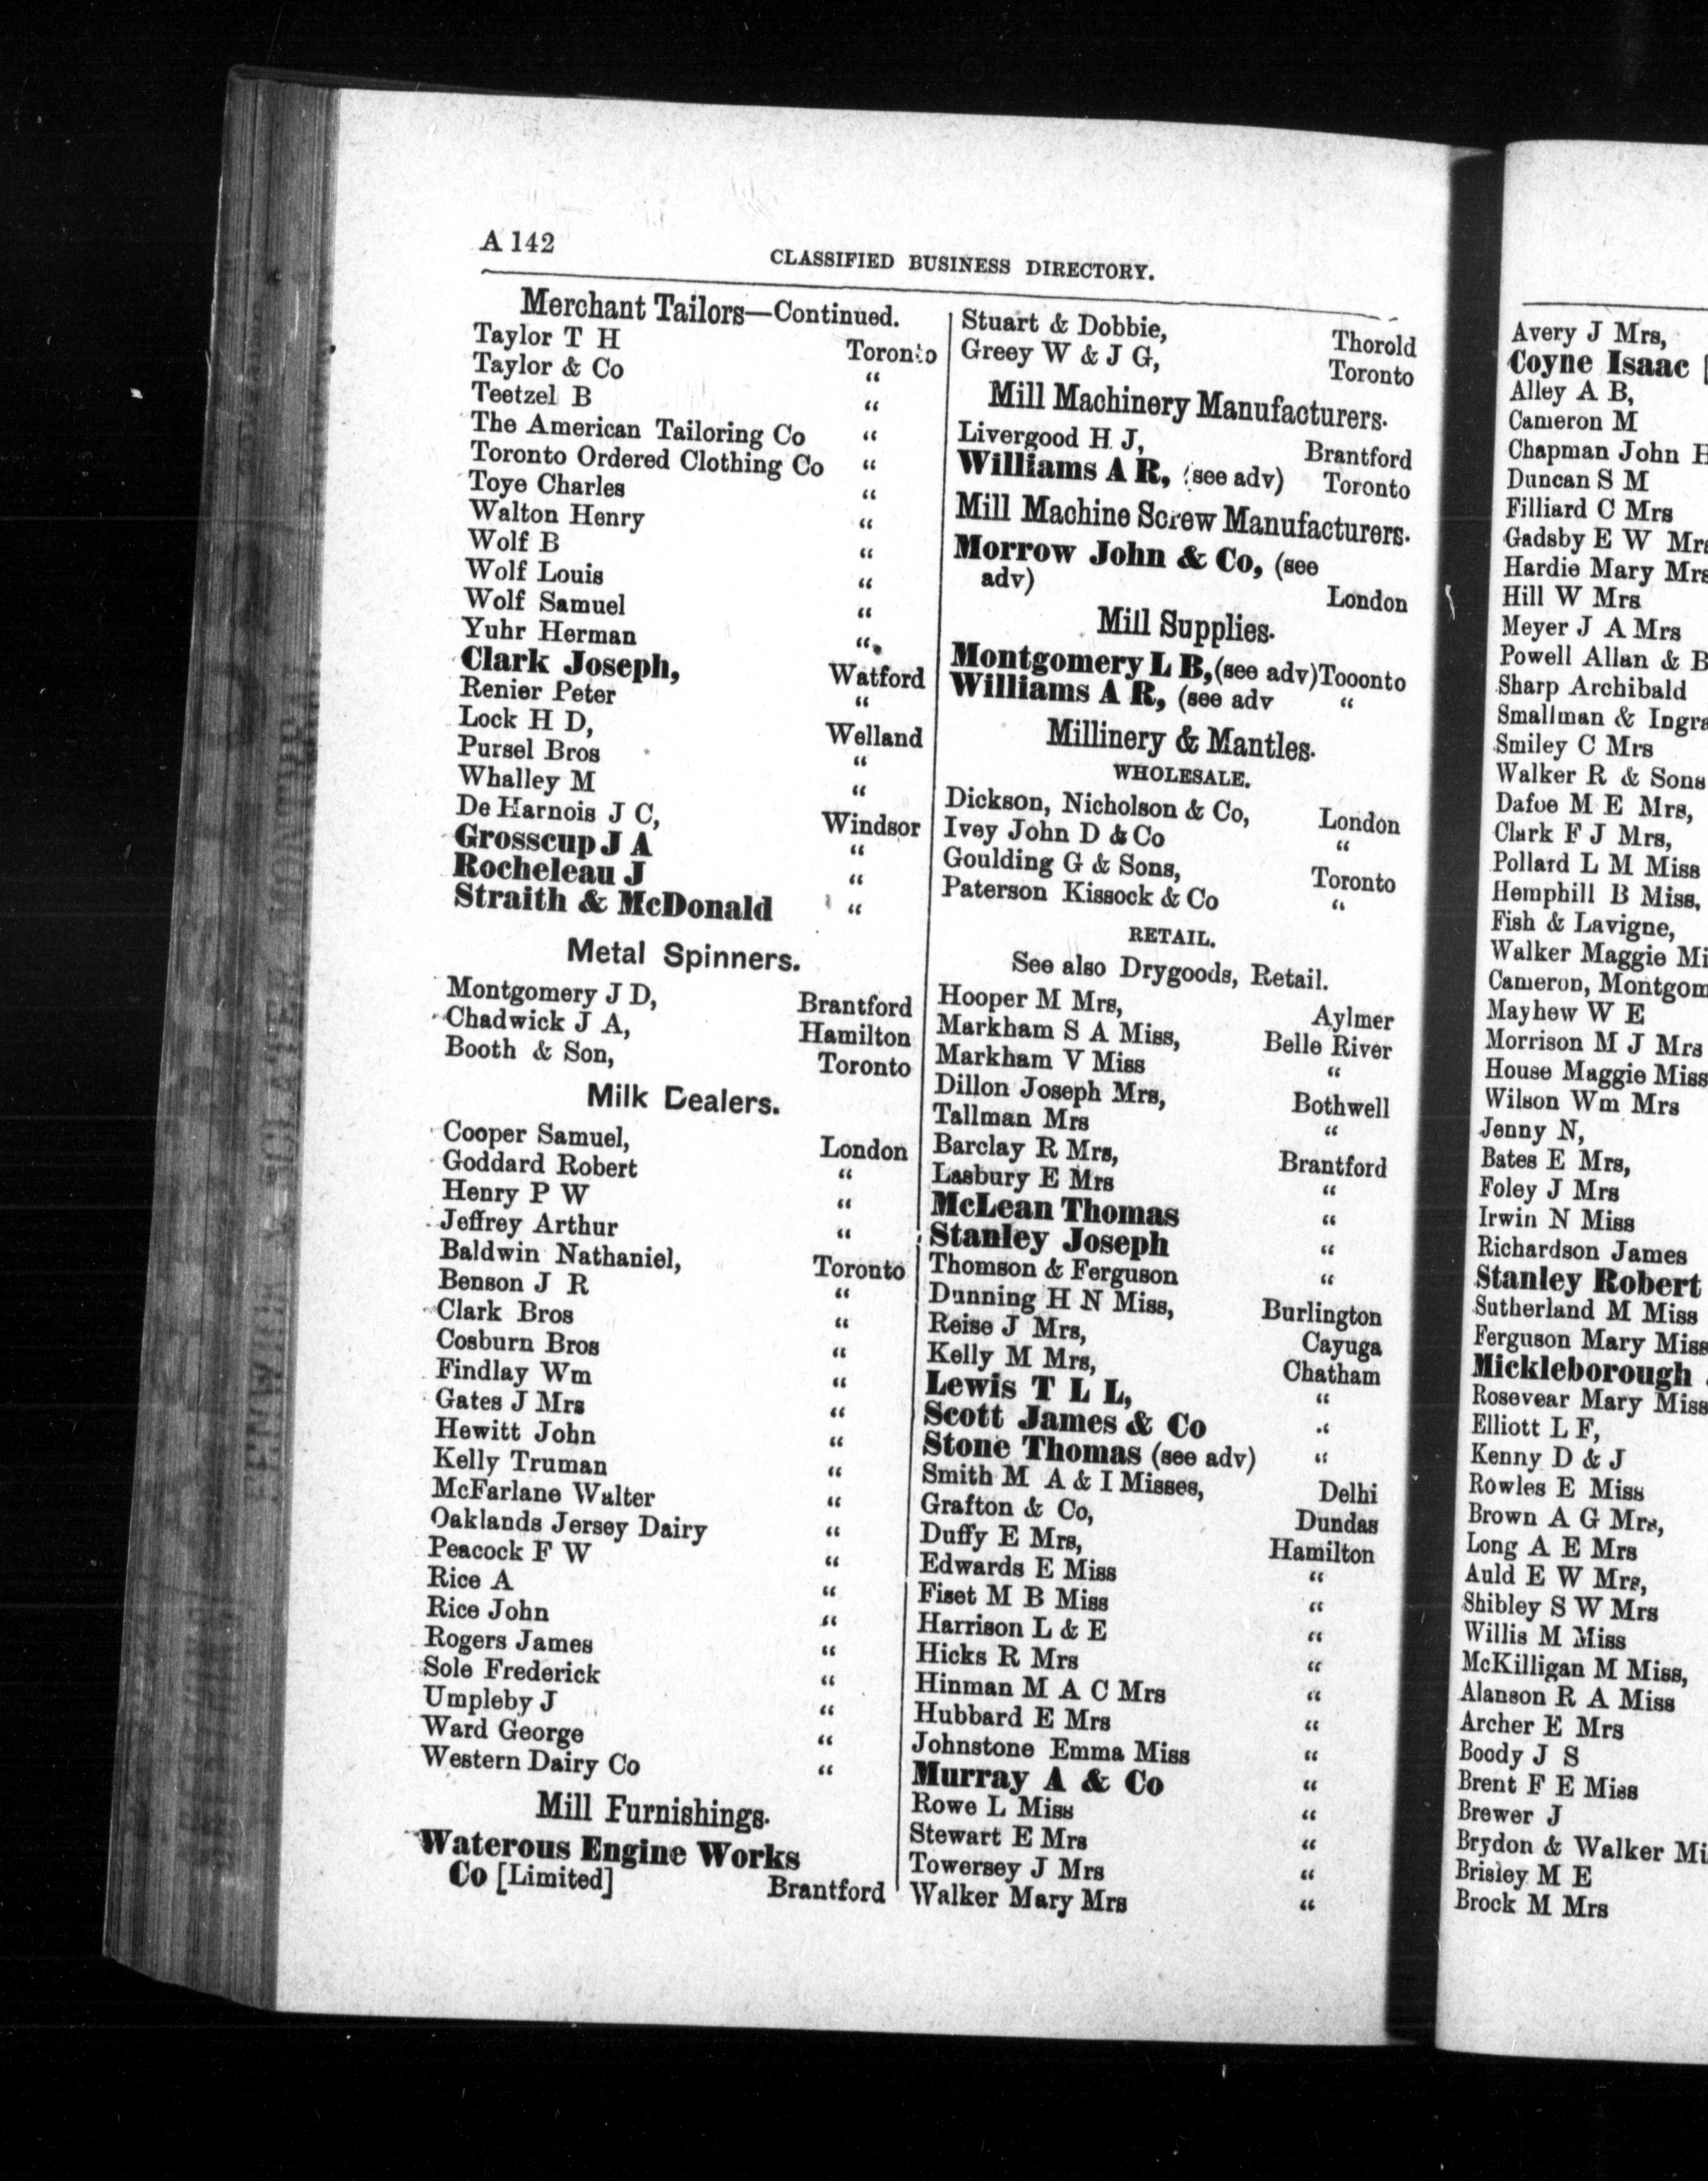 A 142
CLASSIFIED BUSINESS DIRECTORY.
Merchant Tailors—Continued.
Taylor T H Toronto
Taylor & Co “
Teetzel B “
The American Tailoring Co “
Toronto Ordered Clothing Co “
Toye Charles “
Walton Henry “
Wolf B “
Wolf Louis “
Wolf Samuel “
Yuhr Herman “
Clark Joseph, Watford
Renier Peter “
Lock H D, Welland
Pursel Bros “
Whalley M “
De Harnois J C, Windsor
Grosscup J A “
Rocheleau J “
Straith & McDonald “
Metal Spinners.
Montgomery J D, Brantford
Chadwick J A, Hamilton
Booth & Son, Toronto
Milk Dealers.
Cooper Samuel, London
Goddard Robert “
Henry P W “
Jeffrey Arthur “
Baldwin Nathaniel, Toronto
Benson J R “
Clark Bros “
Cosburn Bros “
Findlay Wm “
Gates J Mrs “
Hewitt John “
Kelly Truman “
McFarlane Walter “
Oaklands Jersey Dairy “
Peacock F W “
Rice A “
Rice John “
Rogers James “
Sole Frederick “
Umpleby J “
Ward George “
Western Dairy Co “
Mill Furnishings.
Waterous Engine Works
Co [Limited] Brantford
Stuart & Dobbie, Thorold
Greey W & J G, Toronto
Mill Machinery Manufacturers.
Livergood H J, Brantford
Williams A R, (see adv) Toronto
Mill Machine Screw Manufacturers.
Morrow John & Co, (see
adv) London
Mill Supplies.
Montgomery L B,(see adv)Tooonto
Williams A R, (see adv “
Millinery & Mantles.
WHOLESALE.
Dickson, Nicholson & Co, London
Ivey John D & Co “
Goulding G & Sons, Toronto
Paterson Kissock & Co “
RETAIL.
See also Drygoods, Retail.
Hooper M Mrs, Aylmer
Markham S A Miss, Belle River
Markham V Miss “
Dillon Joseph Mrs, Bothwell
Tallman Mrs “
Barclay R Mrs, Brantford
Lasbury E Mrs “
McLean Thomas “
Stanley Joseph “
Thomson & Ferguson “
Dunning H N Miss, Burlington
Reise J Mrs, Cayuga
Kelly M Mrs, Chatham
Lewis T L L, “
Scott James & Co “
Stone Thomas (see adv) “
Smith M A & I Misses, Delhi
Grafton & Co, Dundas
Duffy E Mrs, Hamilton
Edwards E Miss “
Fiset M B Miss “
Harrison L & E “
Hicks R Mrs “
Hinman M A C Mrs “
Hubbard E Mrs “
Johnstone Emma Miss “
Murray A & Co “
Rowe L Miss “
Stewart E Mrs “
Towersey J Mrs “
Walker Mary Mrs “
Avery J Mrs,
Coyne Isaac [
Alley A B,
Cameron M
Chapman John
Duncan S M
Filliard C Mrs
Gadsby E W Mrs
Hardie Mary Mrs
Hill W Mrs
Meyer J A Mrs
Powell Allan &
Sharp Archibald
Smallman & Ingra
Smiley C Mrs
Walker R & Sons
Dafoe M E Mrs,
Clark F J Mrs,
Pollard L M Miss
Hemphill B Miss,
Fish & Lavigne,
Walker Maggie Mi
Cameron, Montgom
Mayhew W E
Morrison M J Mrs
House Maggie Miss
Wilson Wm Mrs
Jenny N,
Bates E Mrs,
Foley J Mrs
Irwin N Miss
Richardson James
Stanley Robert
Sutherland M Miss
Ferguson Mary Miss
Mickleborough
Rosevear Mary Miss
Elliott L F,
Kenny D & J
Rowles E Miss
Brown A G Mrs,
Long A E Mrs
Auld E W Mrs,
Shibley S W Mrs
Willis M Miss
McKilligan M Miss,
Alanson R A Miss
Archer E Mrs
Boody J S
Brent F E Miss
Brewer J
Brydon & Walker Mi
Brisley M E
Brock M Mrs